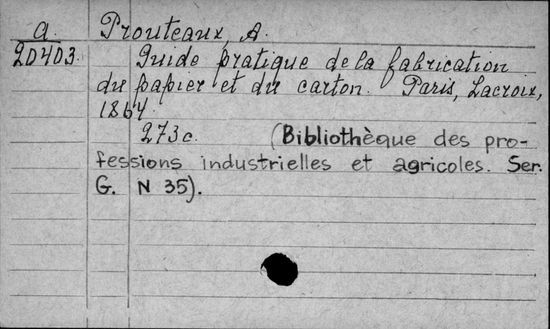 a. Prouteaux, A.
20403. Guide pratique de la fabrication
du papier et du carton. Paris, Lacroix,
1864
273c. (Bibliothèque des pro-
fessions industrielles et agricoles. Ser.
G. N 35).